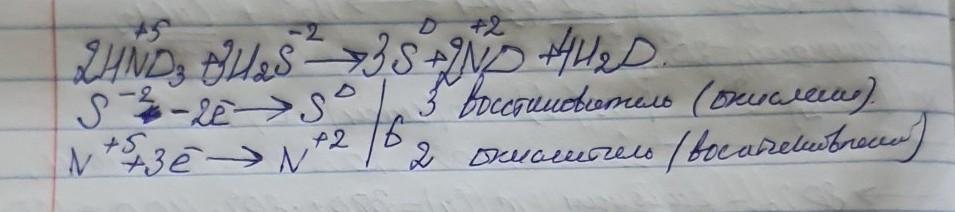 2HN⁺⁵O₃ + 3H₂S⁻² → 3S⁰ + 2N⁺²O + 4H₂O.
S⁻² - 2ē → S⁰ | 3 восстановитель (окисление).
N⁺⁵ + 3ē → N⁺² | 6 2 окислитель (восстановление)